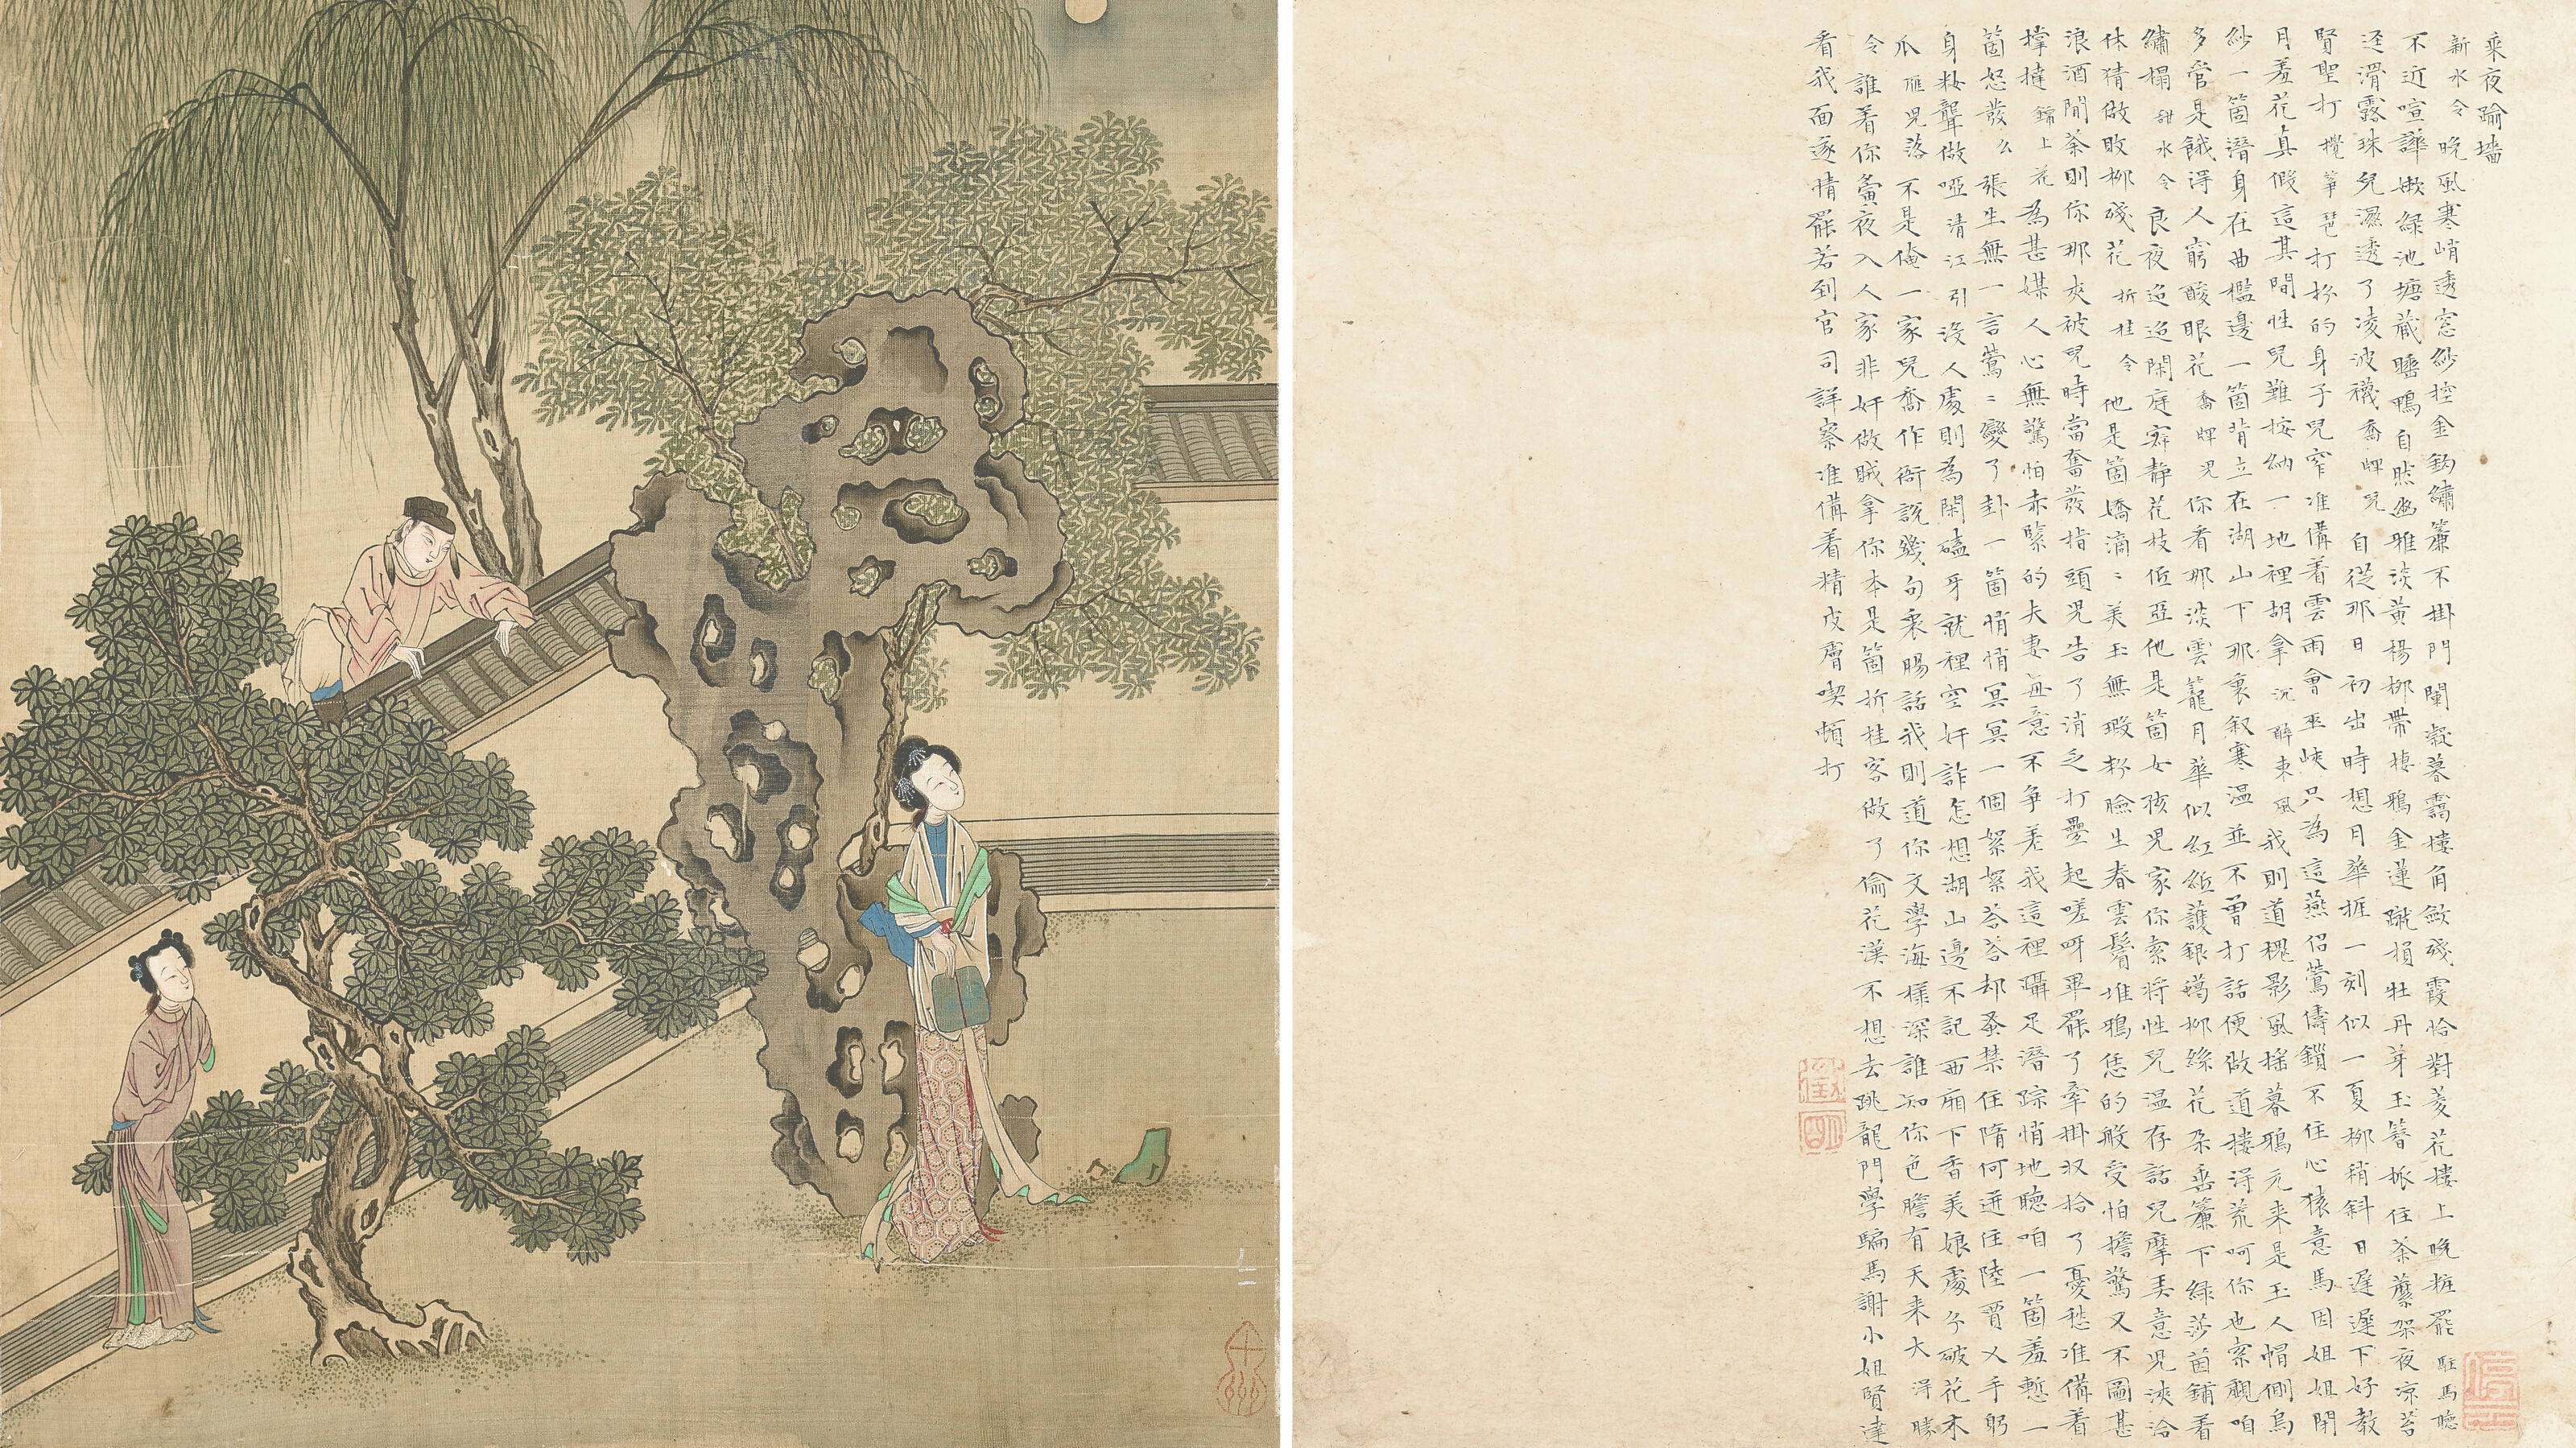 十洲
停雲
乘夜踰墻
新水令 晚風寒峭透窓紗控金鈎繡簾不掛門闌凝暮靄樓角斂殘霞恰對菱花樓上晚粧罷 駐馬聽
不近喧譁嫩綠池塘藏睡鴨自然幽雅淡黃楊柳帶棲鴉金蓮蹴損牡丹芽玉簪抓住荼蘼架夜凉苔
逕滑露珠兒濕透了凌波襪 喬牌兒 自從那日初出時想月華捱一刻似一夏柳稍斜日遲遲下好教
賢聖打 攪箏琶 打扮的身子兒窄准備着雲雨會巫峽只為這燕侶鶯儔鎖不住心猿意馬因姐姐閉
月羞花真假這其間性兒難按納一地裡胡拿 沉醉東風 我則道槐影風搖暮鴉元来是玉人帽側烏
紗一箇潛身在曲檻邊一箇背立在湖山下那裏叙寒温並不曾打話便做道摟得荒呵你也索覷咱
多管是餓得人窮酸眼花 喬牌兒 你看那淡雲籠月華似紅紙護銀蠟柳絲花朵垂簾下綠莎茵鋪着
繡榻 甜水令 良夜迢迢閑庭寂静花枝低亞他是箇女孩兒家你索将性兒温存話兒摩弄意兒浹洽
休猜做敗柳殘花 折桂令 他是箇嬌滴〻美玉無瑕粉臉生春雲鬢堆鴉恁的般受怕擔驚又不圖甚
浪酒閒茶則你那夾被兒時當奮發指頭兒告了消乏打疊起嗟呀畢罷了牽掛収拾了憂愁准備着
撑撻 錦上花 為甚媒人心無驚怕赤緊的夫妻每意不争差我這裡躡足潛踪悄地聽咱一箇羞慙一
箇怒發 么 張生無一言鶯〻變了卦一箇悄悄冥冥一個絮絮荅荅却蚤禁住隋何迸住陸賈乂手躬
身粧聾做啞 清江引 沒人處則為閑磕牙就裡空奸詐怎想湖山邊不記西廂下香美娘處分破花木
爪 雁兒落 不是俺一家兒喬作衙說幾句衷腸話我則道你文學海樣深誰知你色膽有天来大 得勝
令 誰着你夤夜入人家非奸做賊拿你本是箇折桂客做了偷花漢不想去跳龍門學騙馬謝小姐賢達
看我面逐情罷若到官司詳察准備着精皮膚喫頓打
徵明